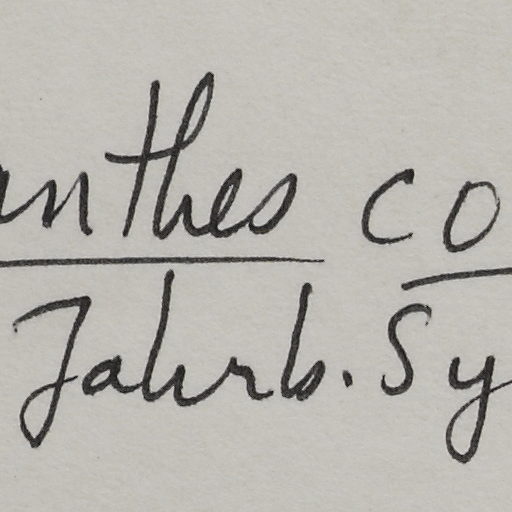 anthes co
Jahrb. Sy